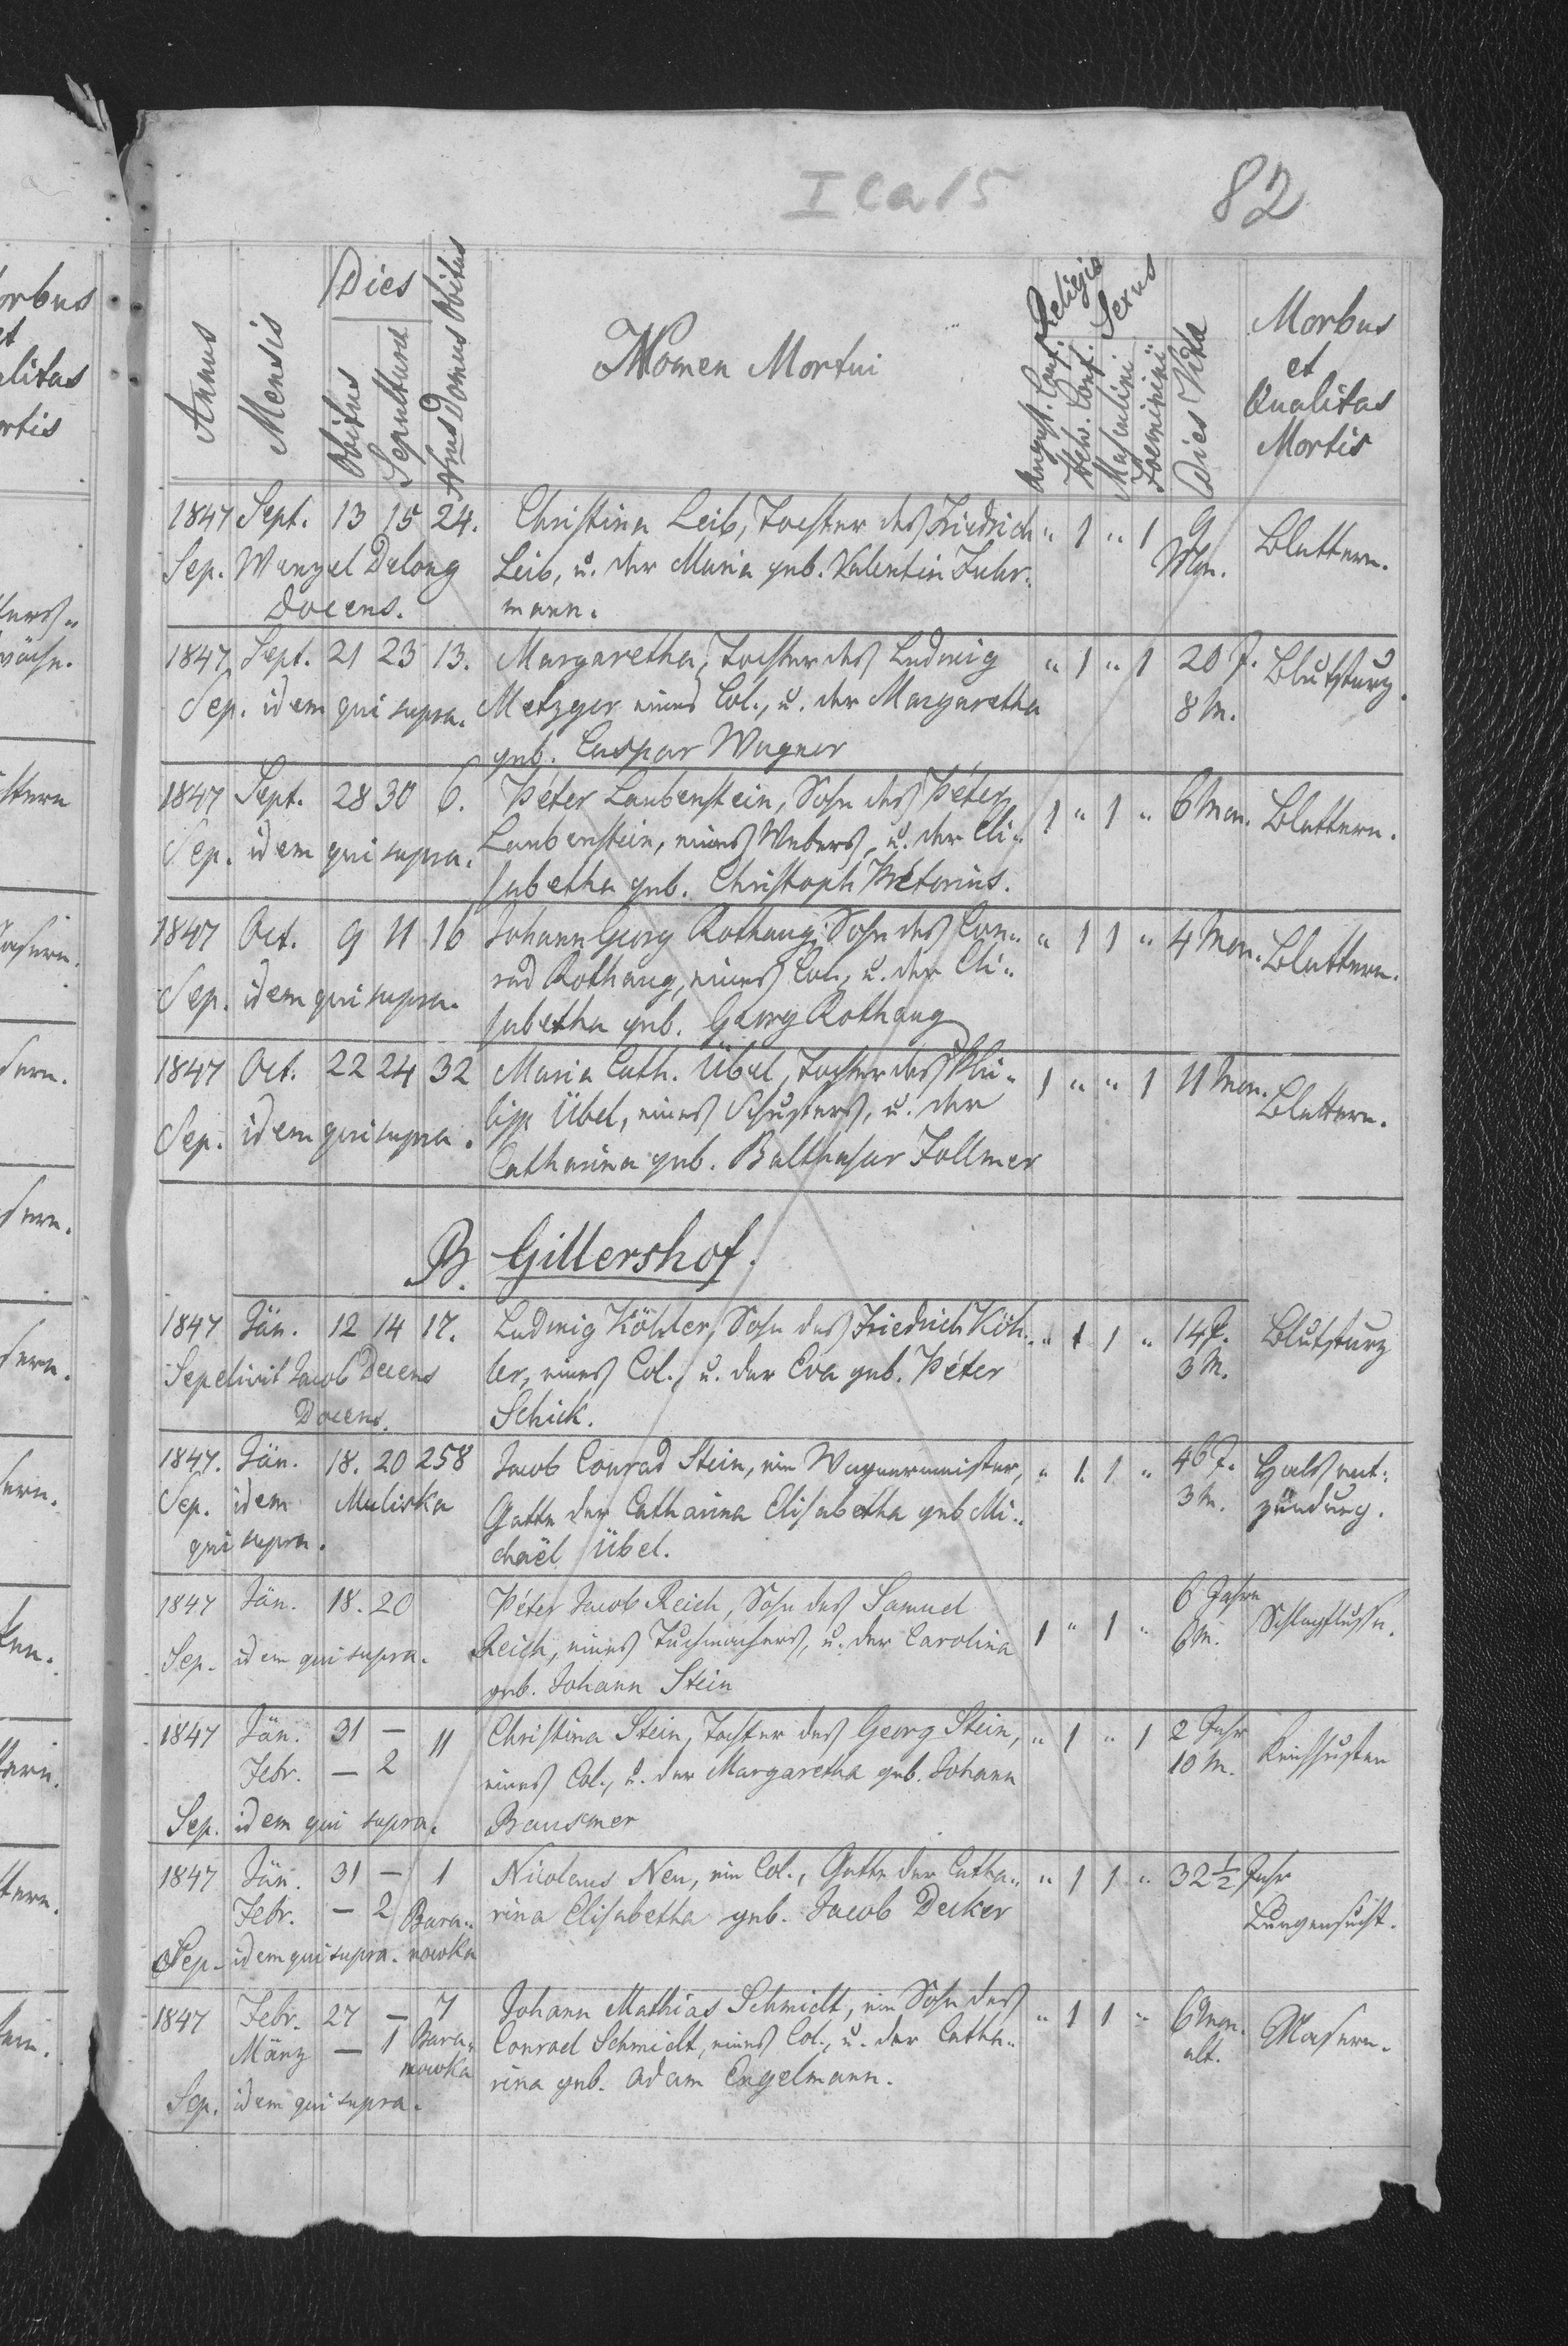 I Ca 15
82
Annus
Mensis
Dies
Obitus
Sepultura
Nrus Domus Obitus
Nomen Mortui
Religio
August. Conf.
Helv. Conf.
Sexus
Masculini
Foeminini
Dies Vita
Morbus
et
Qualitas
Mortis
1847 Sept. 13 15 24. Christina Leib, Tochter des Friedrich " 1 " 1 9 Blattern.
Sep. Wenzel Delong Leib, u. der Maria geb. Valentin Fuhr- Mon.
Docens. mann.
1847 Sept. 21 23 13. Margaretha, Tochter des Ludwig " 1 " 1 20 J. Blutsturz.
Sep. idem qui supra. Metzger eines Col., u. der Margaretha 8 M.
geb. Caspar Wagner
1847 Sept. 28 30 6. Péter Laubenstein, Sohn des Péter 1 " 1 " 6 Mon. Blattern.
Sep. idem qui supra. Laubenstein, eines Webers, u. der Eli-
sabetha geb. Christoph Prétorius.
1847 Oct. 9 11 16 Johann Georg Rothaug, Sohn des Con- " 1 1 " 4 Mon. Blattern.
Sep. idem qui supra. rad Rothaug, eines Col., u. der Eli-
sabetha geb. Georg Rothaug
1847 Oct. 22 24 32 Maria Cath. Übel, Tochter des Phi- 1 " " 1 11 Mon. Blattern.
Sep. idem qui supra. lipp Übel, eines Schusters, u. der
Catharina geb. Balthasar Follmer
B. Gillershof.
1847 Jän. 12 14 17. Ludwig Köhler, Sohn des Friedrich Köh- " 1 1 " 14 J. Blutsturz
Sepelivit Jacob Decens ler, eines Col., u. der Eva geb. Péter 3 M.
Docens. Schick.
1847. Jän. 18. 20 258 Jacob Conrad Stein, ein Wagnermeister, " 1. 1 " 46 J. Halsent-
Sep. idem Muliska Gatte der Catharina Elisabetha geb Mi- 3 M. zündung.
qui supra. chaël Übel.
1847 Jän. 18. 20 Péter Jacob Reich, Sohn des Samuel 6 Jahre
Sep. idem qui supra. Reich, eines Tuchmachers, u. der Carolina 1 " 1 " 6 M. Schlagflusse.
geb. Johann Stein
1847 Jän. 31 — 11 Christina Stein, Tochter des Georg Stein, " 1 " 1 2 Jahr Keichhusten
Febr. — 2 eines Col., u. der Margaretha geb. Johann 10 M.
Sep. idem qui supra. Brausmer
1847 Jän. 31 — 1 Nicolaus Neu, ein Col., Gatte der Catha- " 1 1 " 32 ½ Jahr
Febr. — 2 Bara- rina Elisabetha geb. Jacob Decker Lungensucht.
Sep. idem qui supra. nowka
1847 Febr. 27 — 7 Johann Mathias Schmidt, ein Sohn des " 1 1 " 6 Mon. Masern.
März — 1 Bara- Conrad Schmidt, eines Col., u. der Catha- alt.
nowka rina geb. Adam Engelmann.
Sep. idem qui supra.